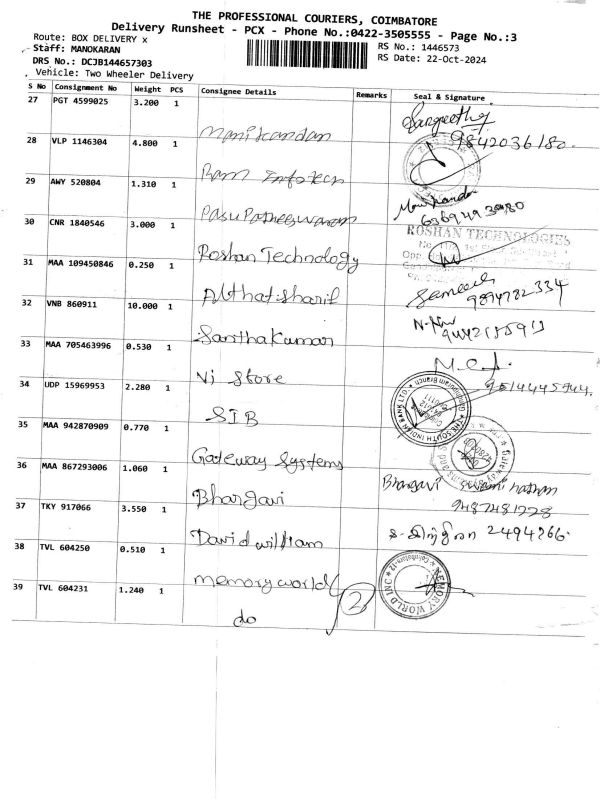 THE PROFESSIONAL COURIERS, COIMBATORE
Delivery Runsheet - PCX - Phone No.:0422-3505555 - Page No.:3
Route: BOX DELIVERY x
Staff: MANOKARAN
RS No.: 1446573
DRS No.: DCJB144657303
RS Date: 22-Oct-2024
Vehicle: Two Wheeler Delivery
S No Consignment No Weight PCS Consignee Details Remarks Seal & Signature
27 PGT 4599025 3.200 1 Manikandan Sangeetha
9842036180.
28 VLP 1146304 4.800 1 Ram Infotech
29 AWY 520804 1.310 1 Pasupatheeswaran
30 CNR 1840546 3.000 1 Roshan Technology ROSHAN TECHNOLOGIES
31 MAA 109450846 0.250 1 Althat sharif
9894782334
32 VNB 860911 10.000 1 Santhakumar
33 MAA 705463996 0.530 1 Vi Store
9514445944.
34 UDP 15969953 2.280 1 SIB THE SOUTH INDIAN BANK LTD.
35 MAA 942870909 0.770 1 Gateway Systems
36 MAA 867293006 1.060 1 Bhargavi Bhargavi swaminathan
9487481228
37 TKY 917066 3.550 1 David william 2494266.
38 TVL 604250 0.510 1 memory world MEMORY WORLD INC
39 TVL 604231 1.240 1 do
2